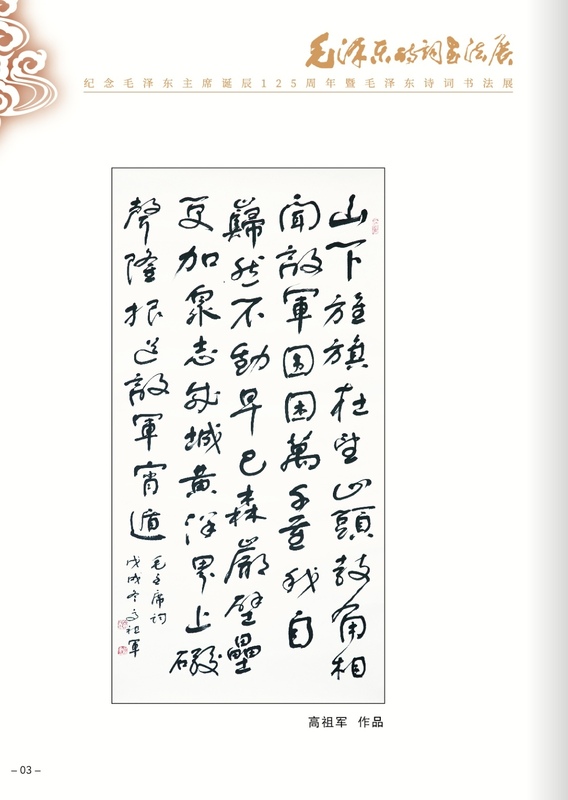 毛泽东诗词书法展
纪念毛泽东主席诞辰125周年暨毛泽东诗词书法展
山下旌旗在望山頭鼓角相
聞敵軍围困萬千重我自
巋然不動早已森嚴壁壘
更加眾志成城黄洋界上礮
聲隆报道敵軍宵遁
毛主席詞
戊戌冬高祖軍
高祖军 作品
– 03 –